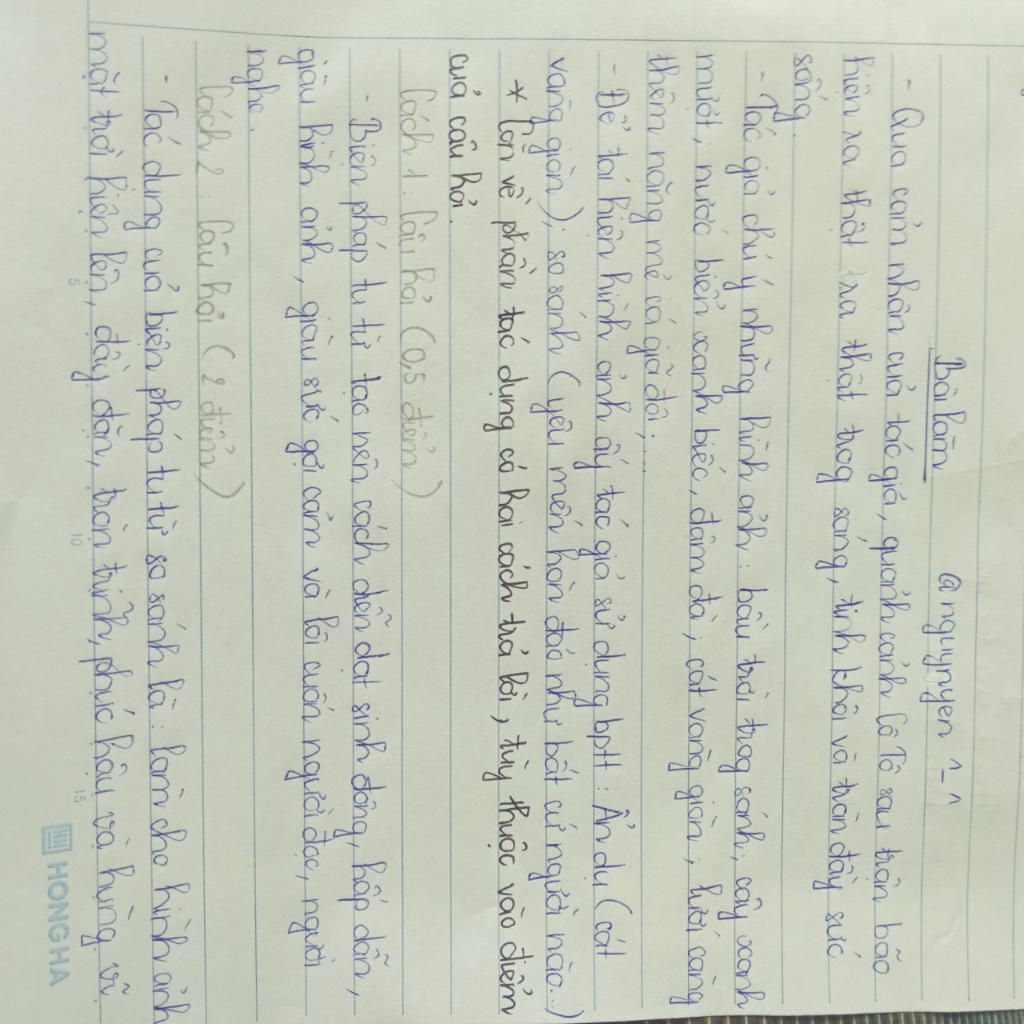 Bài làm @nguynyen ^-^
- Qua cảm nhận của tác giả, quanh cảnh Cô Tô sau trận bão
hiện ra thật ra thật trog sáng, tinh khôi và tràn đầy sức
sống.
- Tác giả chú ý những hình ảnh: bầu trời trog sánh; cây xanh
mượt; nước biển xanh biếc, đậm đà; cát vàng giòn; lưới càng
thêm nặng mẻ cá giã đôi;...
- Để tái hiện hình ảnh ấy tác giả sử dụng bptt: Ẩn dụ (cát
vàng giòn); so sánh (yêu mến hòn đảo như bất cứ người nào...)
* Còn về phần tác dụng có hai cách trả lời, tùy thuộc vào điểm
của câu hỏi.
Cách 1: Câu hỏi (0,5 điểm)
- Biện pháp tu từ tạo nên cách diễn đạt sinh động, hấp dẫn,
giàu hình ảnh, giàu sức gợi cảm và lôi cuốn người đọc, người
nghe.
Cách 2: Câu hỏi (2 điểm)
- Tác dụng của biện pháp tu từ so sánh là: làm cho hình ảnh
mặt trời hiện lên, đầy đặn, trọn trịnh, phúc hậu và hùng vĩ
5 10 15
HONG HA